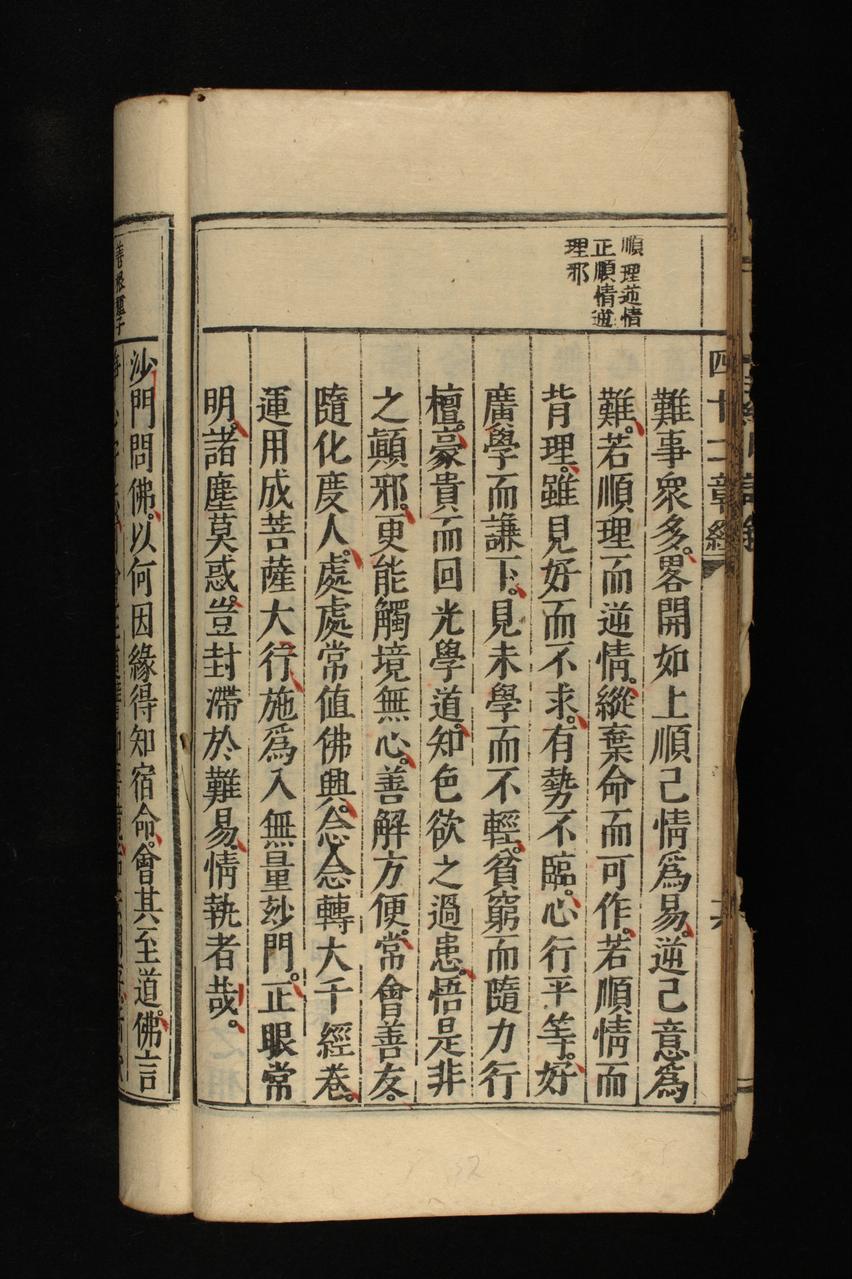 四十二章經
六
順理逆情
正順情逆
理邪
難事衆多。畧開如上順己情爲易。逆己意爲
難。若順理而逆情。縱棄命而可作。若順情而
背理。雖見好而不求。有勢不臨。心行平等。好
廣學而謙下。見未學而不輕。貧窮而隨力行
檀。豪貴而回光學道。知色欲之過患。悟是非
之顚邪。更能觸境無心。善解方便。常會善友。
隨化度人。處處常值佛興。念念轉大千經卷。
運用成菩薩大行。施爲入無量玅門。正眼常
明。諸塵莫惑。豈封滯於難易。情執者哉。
沙門問佛。以何因緣得知宿命。會其至道。佛言